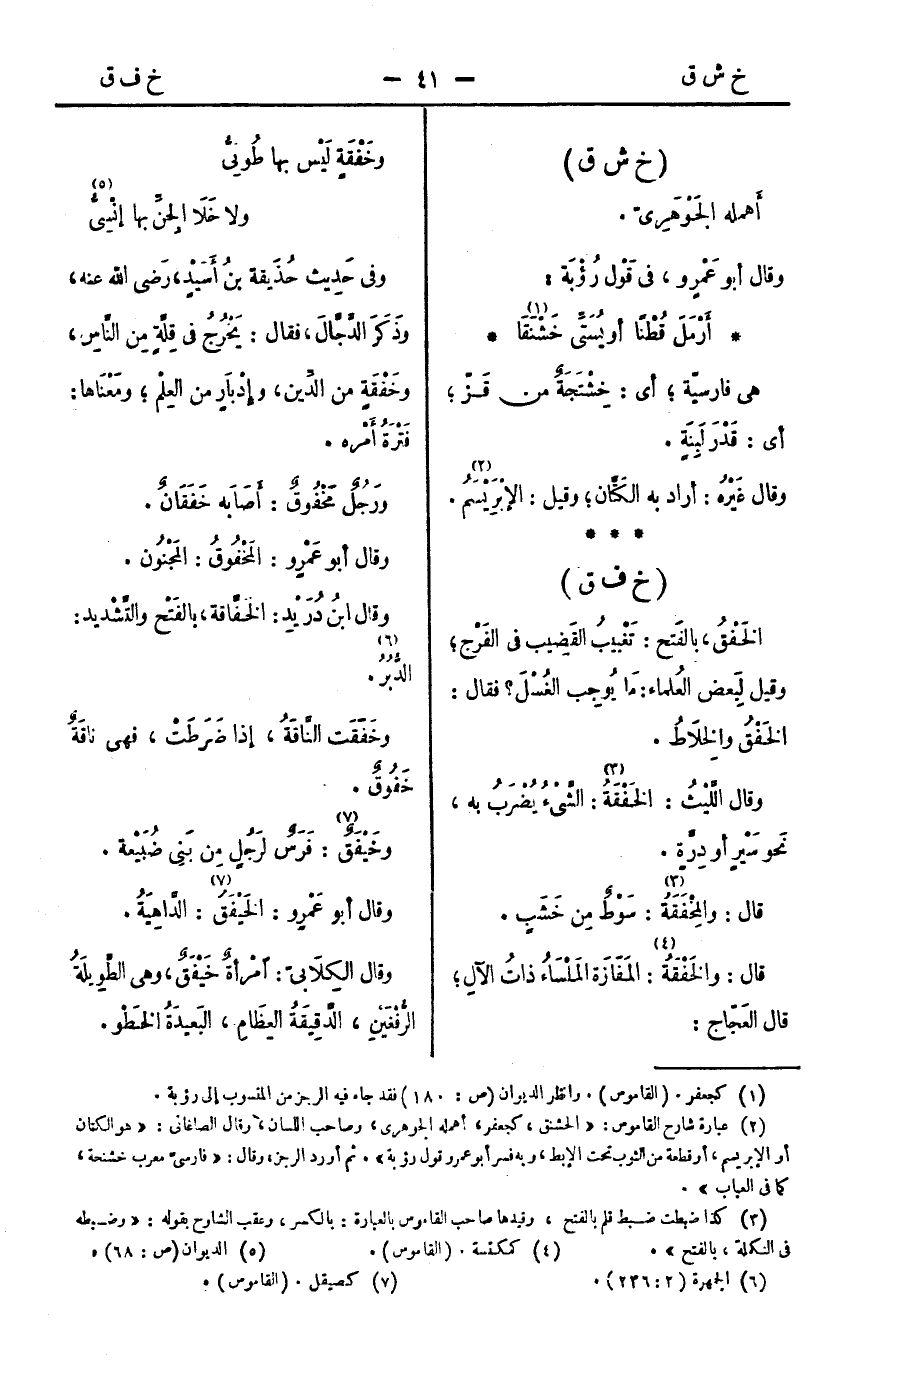 خ ش ق — ٤١ — خ ف ق
(خ ش ق)
أهمله الجَوْهَرِىّ .
وقال أبو عَمْرٍو ، فى قَوْل رُؤْبَة :
* أَرْمَلَ قُطْنًا أو يُسَتَّى خَشْتَقَا (١) *
هى فارسيّة ؛ أى : خِشْتَجَةٌ من قَـزّ ؛
أى : قَدْرَ لَبِنَةٍ .
وقال غَيْرُه : أراد به الكَتَّان؛ وقيل : الإبْرِيْسَم (٢) .
* * *
(خ ف ق)
الخَفْقُ، بالفَتح : تَغْيِيبُ القَضِيب فى الفَرْج؛
وقيل لبَعض العُلماء: مَا يُوجِب الغُسْلَ؟ فقال :
الخَفْقُ والخِلَاطُ .
وقال اللَّيْثُ : الخَفْقَةُ (٣) : الشَّىْءُ يُضْرَبُ به ،
نَحو سَيْرٍ أو دِرَّةٍ .
قال : والمِخْفَقَةُ (٣) : سَوْطٌ مِن خَشَبٍ .
قال : والخَفْقَةُ (٤) : المَفَازَة المَلْسَاءُ ذاتُ الآلِ؛
قال العَجّاج :
وخَفْقَةٍ لَيْس بها طُونِىُّ
ولا خَلَا الجِنَّ بها إنْسِىُّ (٥)
وفى حَدِيث حُذَيفة بنُ أَسَيْدٍ، رَضى الله عنه،
وَذَكَرَ الدَّجَّالَ، فقال : يَخْرُجُ فى قِلَّةٍ مِن النَّاسِ،
وخَفْقَةٍ من الدِّين، وإدْبَارٍ من العِلْم ؛ ومَعْنَاها:
فَتْرَةُ أَمْره .
ورَجُلٌ مَخْفُوقٌ : أَصَابه خَفَقَانٌ .
وقال أبو عَمْرٍو : المَخْفُوقُ : المَجْنُون .
وقال ابنُ دُرَيْدٍ: الخَفَّاقة، بالفَتْح والتَّشْديد:
الدُّبُرُ (٦) .
وخَفَقَت النَّاقَةُ ، إذا ضَرَطَتْ ، فهى ناقَةٌ
خَفُوقٌ .
وخَيْفَقٌ (٧) : فَرَسٌ لرَجُلٍ مِن بَنِى ضُبَيْعة .
وقال أبو عَمْرو : الخَيْفَقُ (٧) : الدَّاهِيَةُ .
وقال الكِلَابىّ: امْرأةٌ خَيْفَقٌ، وهى الطَّوِيلَةُ
الرُّفْغَيْنِ ، الدَّقِيقَةُ العِظَامِ ، البَعيدَةُ الخَطْو .
(١) كجعفر . (القاموس) . وانظر الديوان (ص : ١٨٠) فقد جاء فيه الرجز من المنسوب إلى رؤبة .
(٢) عبارة شارح القاموس : « الخشتق ، كجعفر، أهمله الجوهرى، وصاحب اللسان، وقال الصاغانى : « هو الكتان
أو الإبريسم ، أو قطعة من الثوب تحت الإبط ، وبه فسر أبو عمرو قول رؤبة » . ثم أورد الرجز، وقال : « فارسىّ معرب خشتجة ،
كما فى العباب » .
(٣) كذا ضبطت ضبط قلم بالفتح ، وقيدها صاحب القاموس بالعبارة : بالكسر ، وعقب الشارح بقوله : « وضبطه
فى التكملة ، بالفتح » . (٤) كمكنسة . (القاموس) . (٥) الديوان (ص : ٦٨) .
(٦) الجهرة (٢ : ٢٣٦) . (٧) كصيقل . (القاموس) .